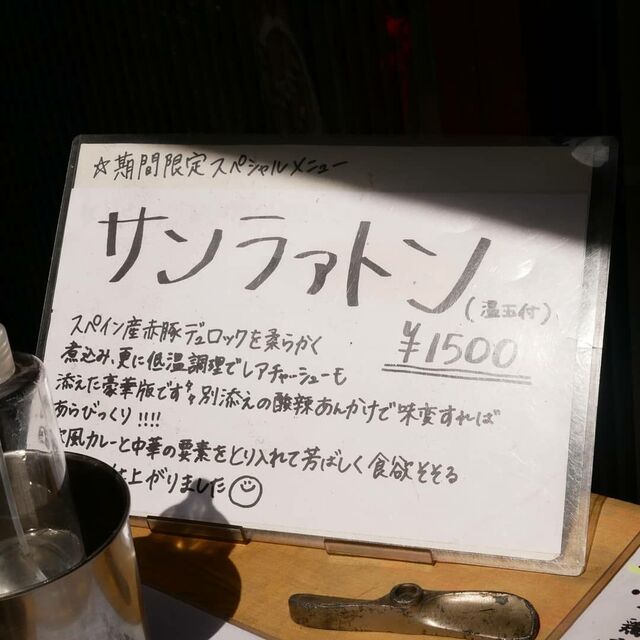 ☆期間限定スペシャルメニュー
サンラァトン
(温玉付)
¥1500
スペイン産赤豚デュロックを柔らかく
煮込み、更に低温調理でレアチャーシューも
添えた豪華版です 別添えの酸辣あんかけで味変すれば
あらびっくり!!!!
風カレーと中華の要素をとり入れて芳ばしく食欲そそる
上がりました